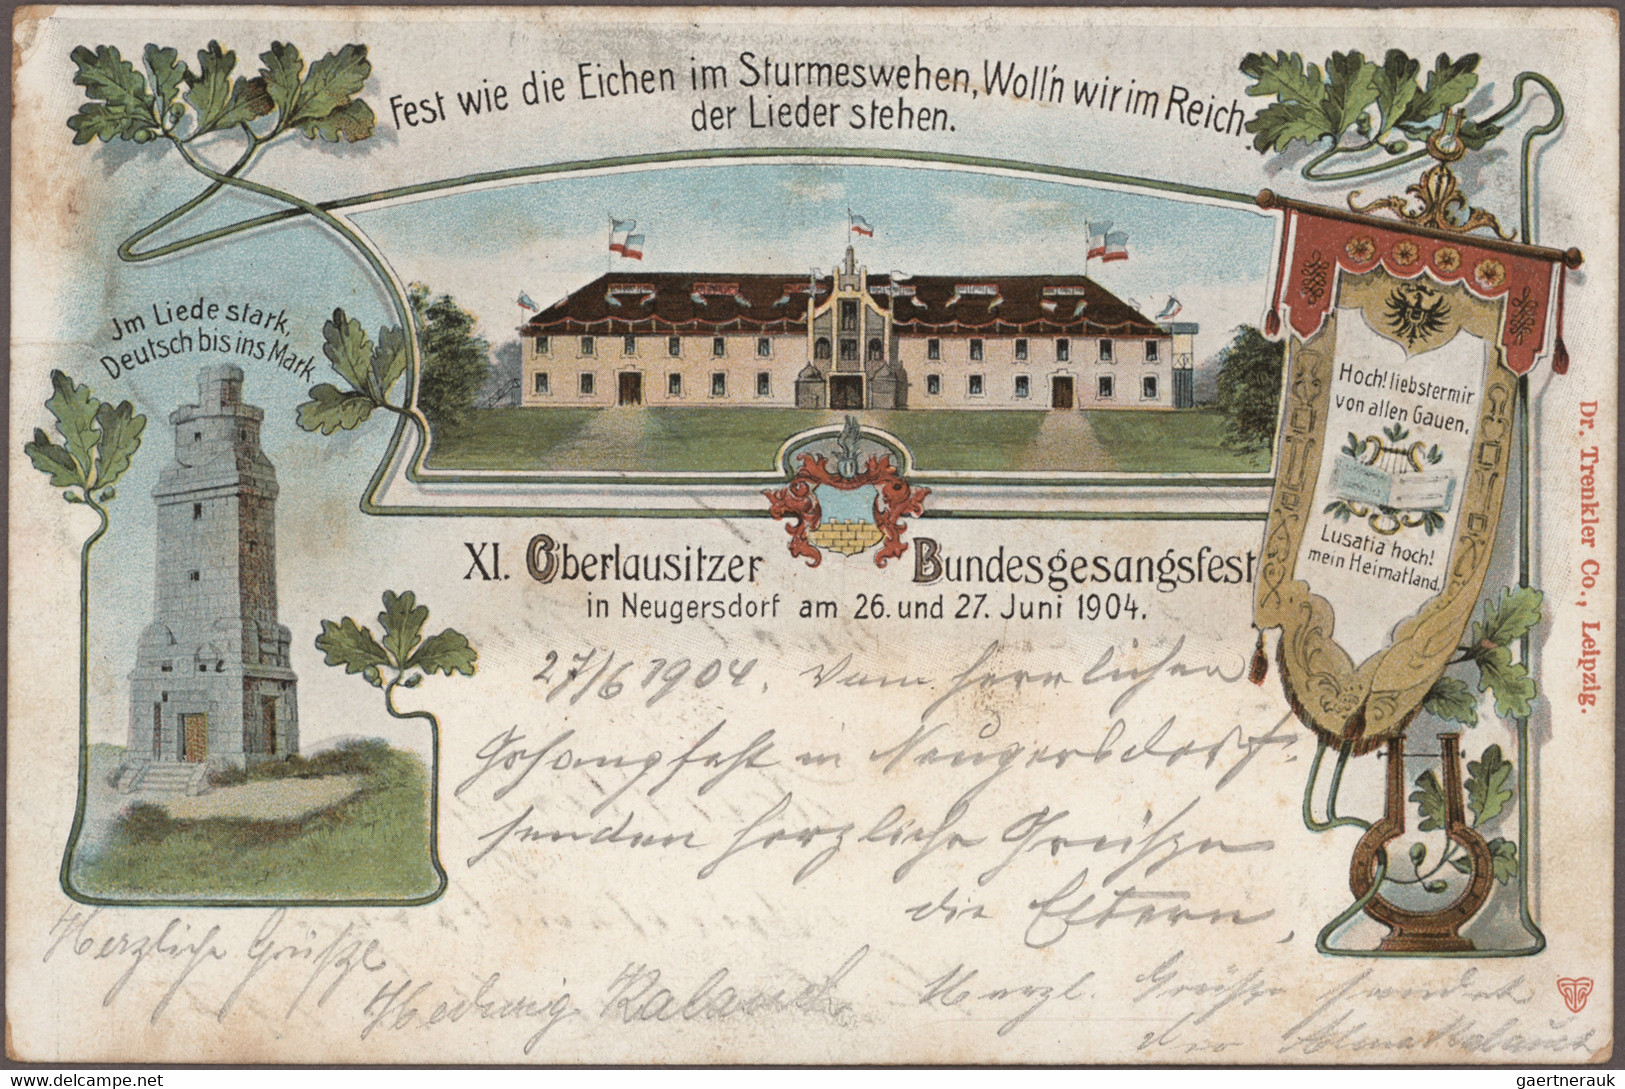 Fest wie die Eichen im Sturmeswehen, Woll'n wir im Reich
der Lieder stehen.
Jm Liede stark,
Deutsch bis ins Mark
Hoch! liebster mir
von allen Gauen.
Lusatia hoch!
mein Heimatland.
XI. Oberlausitzer Bundesgesangsfest
in Neugersdorf am 26. und 27. Juni 1904.
27/6 1904. Vom herrlichen
Gesangfest in Neugersdorf
senden herzliche Grüße
die Eltern,
Herzliche Grüße
Hedwig
Herzl. Grüße sendet
Dr. Trenkler Co., Leipzig.
delcampe.net
gaertnerauk